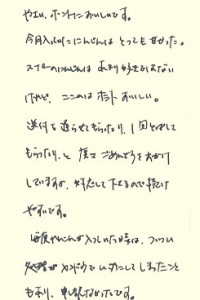 やさい、ホントにおいしいです。
今月入ったにんじんは とっても 甘かった。
スーパーのにんじんは あまり好きじゃない
けれど、ここのは ホント おいしい。
送付を遅らせてもらったり、1回とばして
もらったり、と 度々 ごめんどうをおかけ
していますが、対応して下さるので続け
やすいです。
以前 やさいが入っていた袋は、ついつい
カンタンで
してしまったこと
もあり、申し訳なかったです。